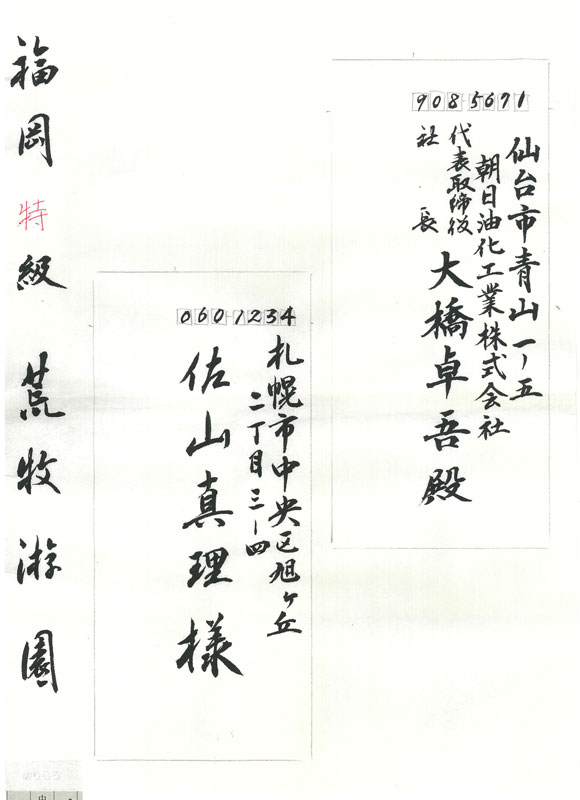 9085671
仙台市青山一ノ五
朝日油化工業株式会社
代表取締役
社長
大橋卓吾殿
0601234
札幌市中央区旭ヶ丘
二丁目三ー四
佐山真理様
福岡特級 荒牧游園